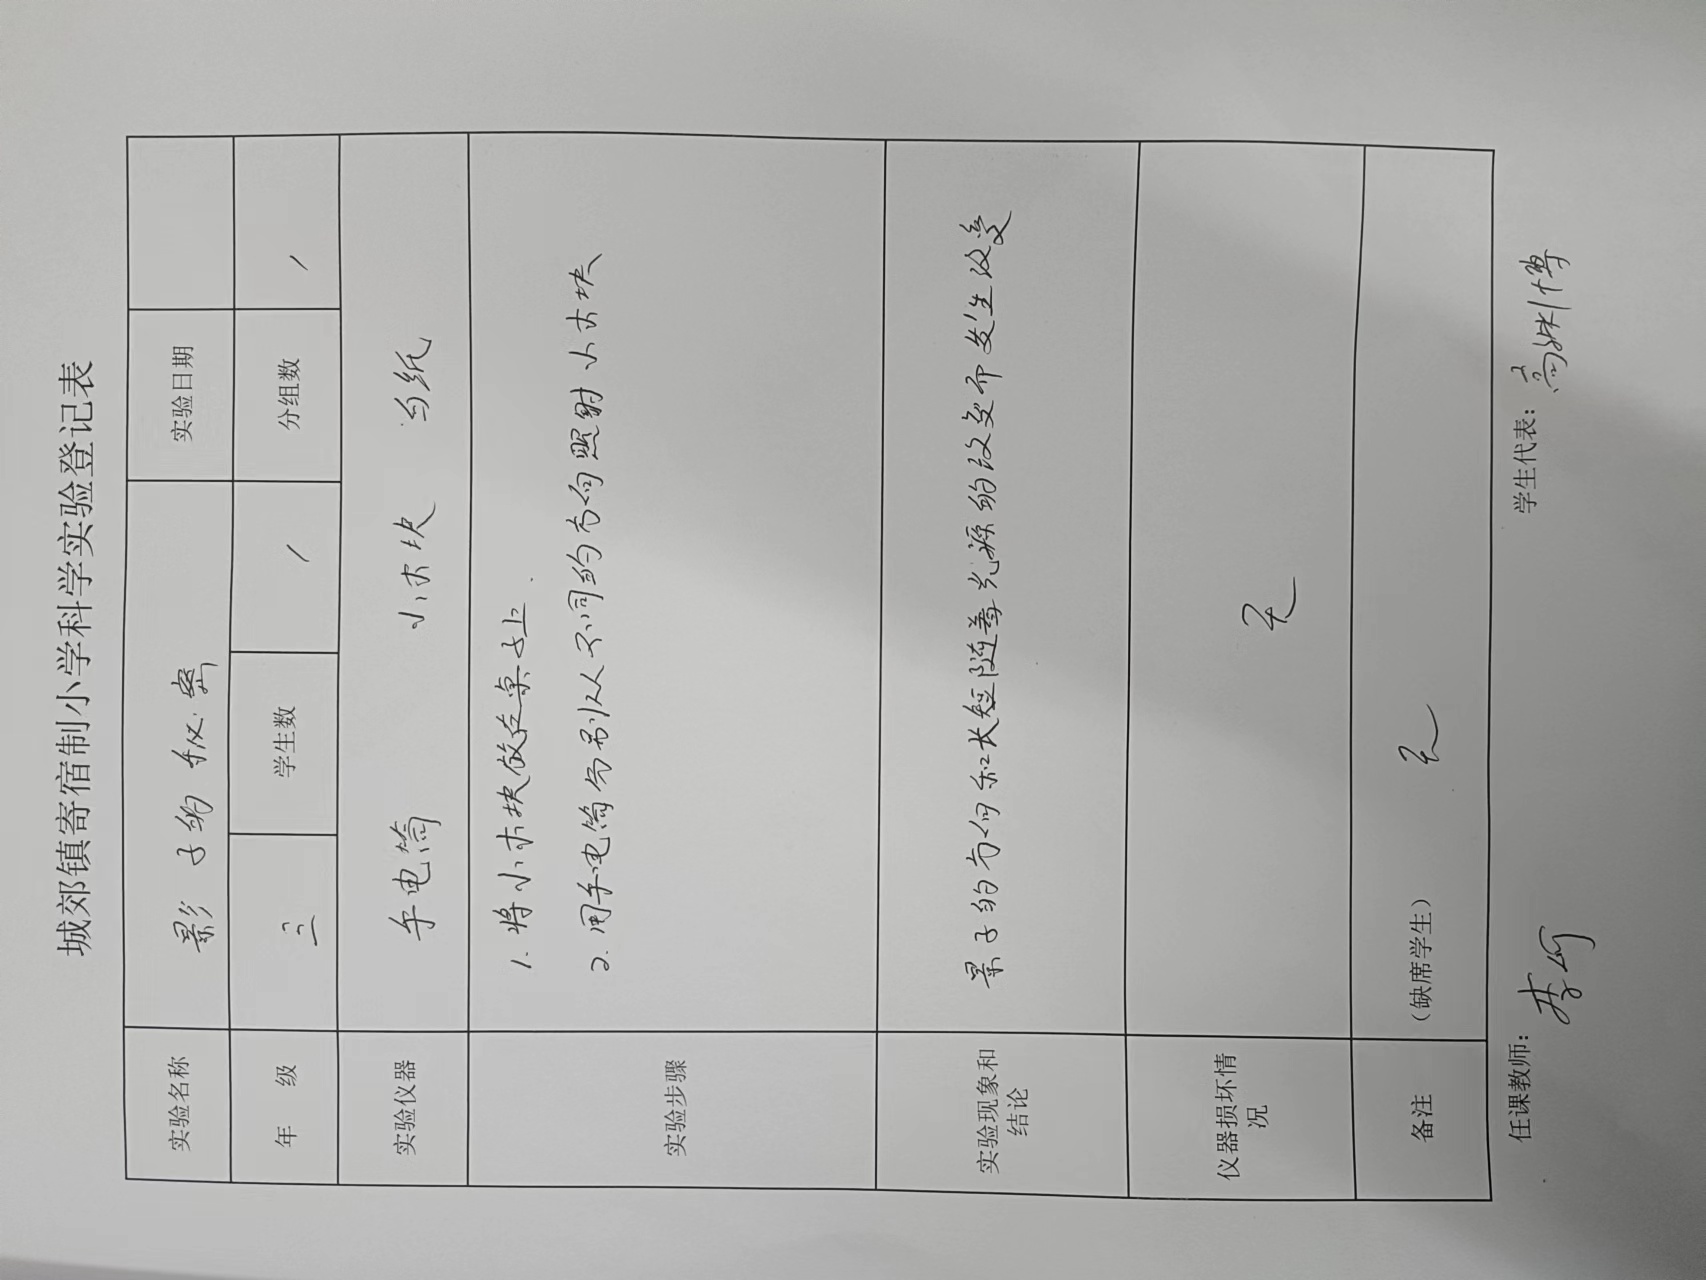 城郊镇寄宿制小学科学实验登记表
实验名称 影子的秘密 实验日期
年 级 三 学生数 / 分组数 /
实验仪器 手电筒 小木块 白纸
实验步骤
1. 将小木块放在桌子上.
2. 用手电筒分别从不同的方向照射小木块
实验现象和
结论
景子的方向和长短随着光源的改变而发生改变
仪器损坏情
况
无
备注 （缺席学生） 无
任课教师： 学生代表：